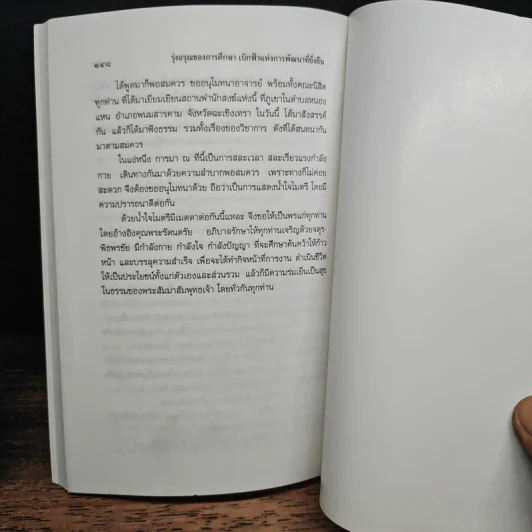 ๑๔๘
รุ่งอรุณของการศึกษา เบิกฟ้าแห่งการพัฒนาที่ยั่งยืน
ได้พูดมาก็พอสมควร ขออนุโมทนาอาจารย์ พร้อมทั้งคณะนิสิต
ทุกท่าน ที่ได้มาเยี่ยมเยียนสถานพำนักสงฆ์แห่งนี้ ที่ภูเขาในตำบลหนอง
แหน อำเภอพนมสารคาม จังหวัดฉะเชิงเทรา ในวันนี้ ได้มาสังสรรค์
กัน แล้วก็ได้มาฟังธรรม รวมทั้งเรื่องของวิชาการ ดังที่ได้สนทนากัน
มาตามสมควร
ในแง่หนึ่ง การมา ณ ที่นี้เป็นการสละเวลา สละเรี่ยวแรงกำลัง
กาย เดินทางกันมาด้วยความลำบากพอสมควร เพราะทางก็ไม่ค่อย
สะดวก จึงต้องขออนุโมทนาด้วย ถือว่าเป็นการแสดงน้ำใจไมตรี โดยมี
ความปรารถนาดีต่อกัน
ด้วยน้ำใจไมตรีมีเมตตาต่อกันนี้แหละ จึงขอให้เป็นพรแก่ทุกท่าน
โดยอ้างอิงคุณพระรัตนตรัย อภิบาลรักษาให้ทุกท่านเจริญด้วยจตุร-
พิธพรชัย มีกำลังกาย กำลังใจ กำลังปัญญา ที่จะศึกษาค้นคว้าให้ก้าว
หน้า และบรรลุความสำเร็จ เพื่อจะได้ทำกิจหน้าที่การงาน ดำเนินชีวิต
ให้เป็นประโยชน์ทั้งแก่ตัวเองและส่วนรวม แล้วก็มีความร่มเย็นเป็นสุข
ในธรรมของพระสัมมาสัมพุทธเจ้า โดยทั่วกันทุกท่าน